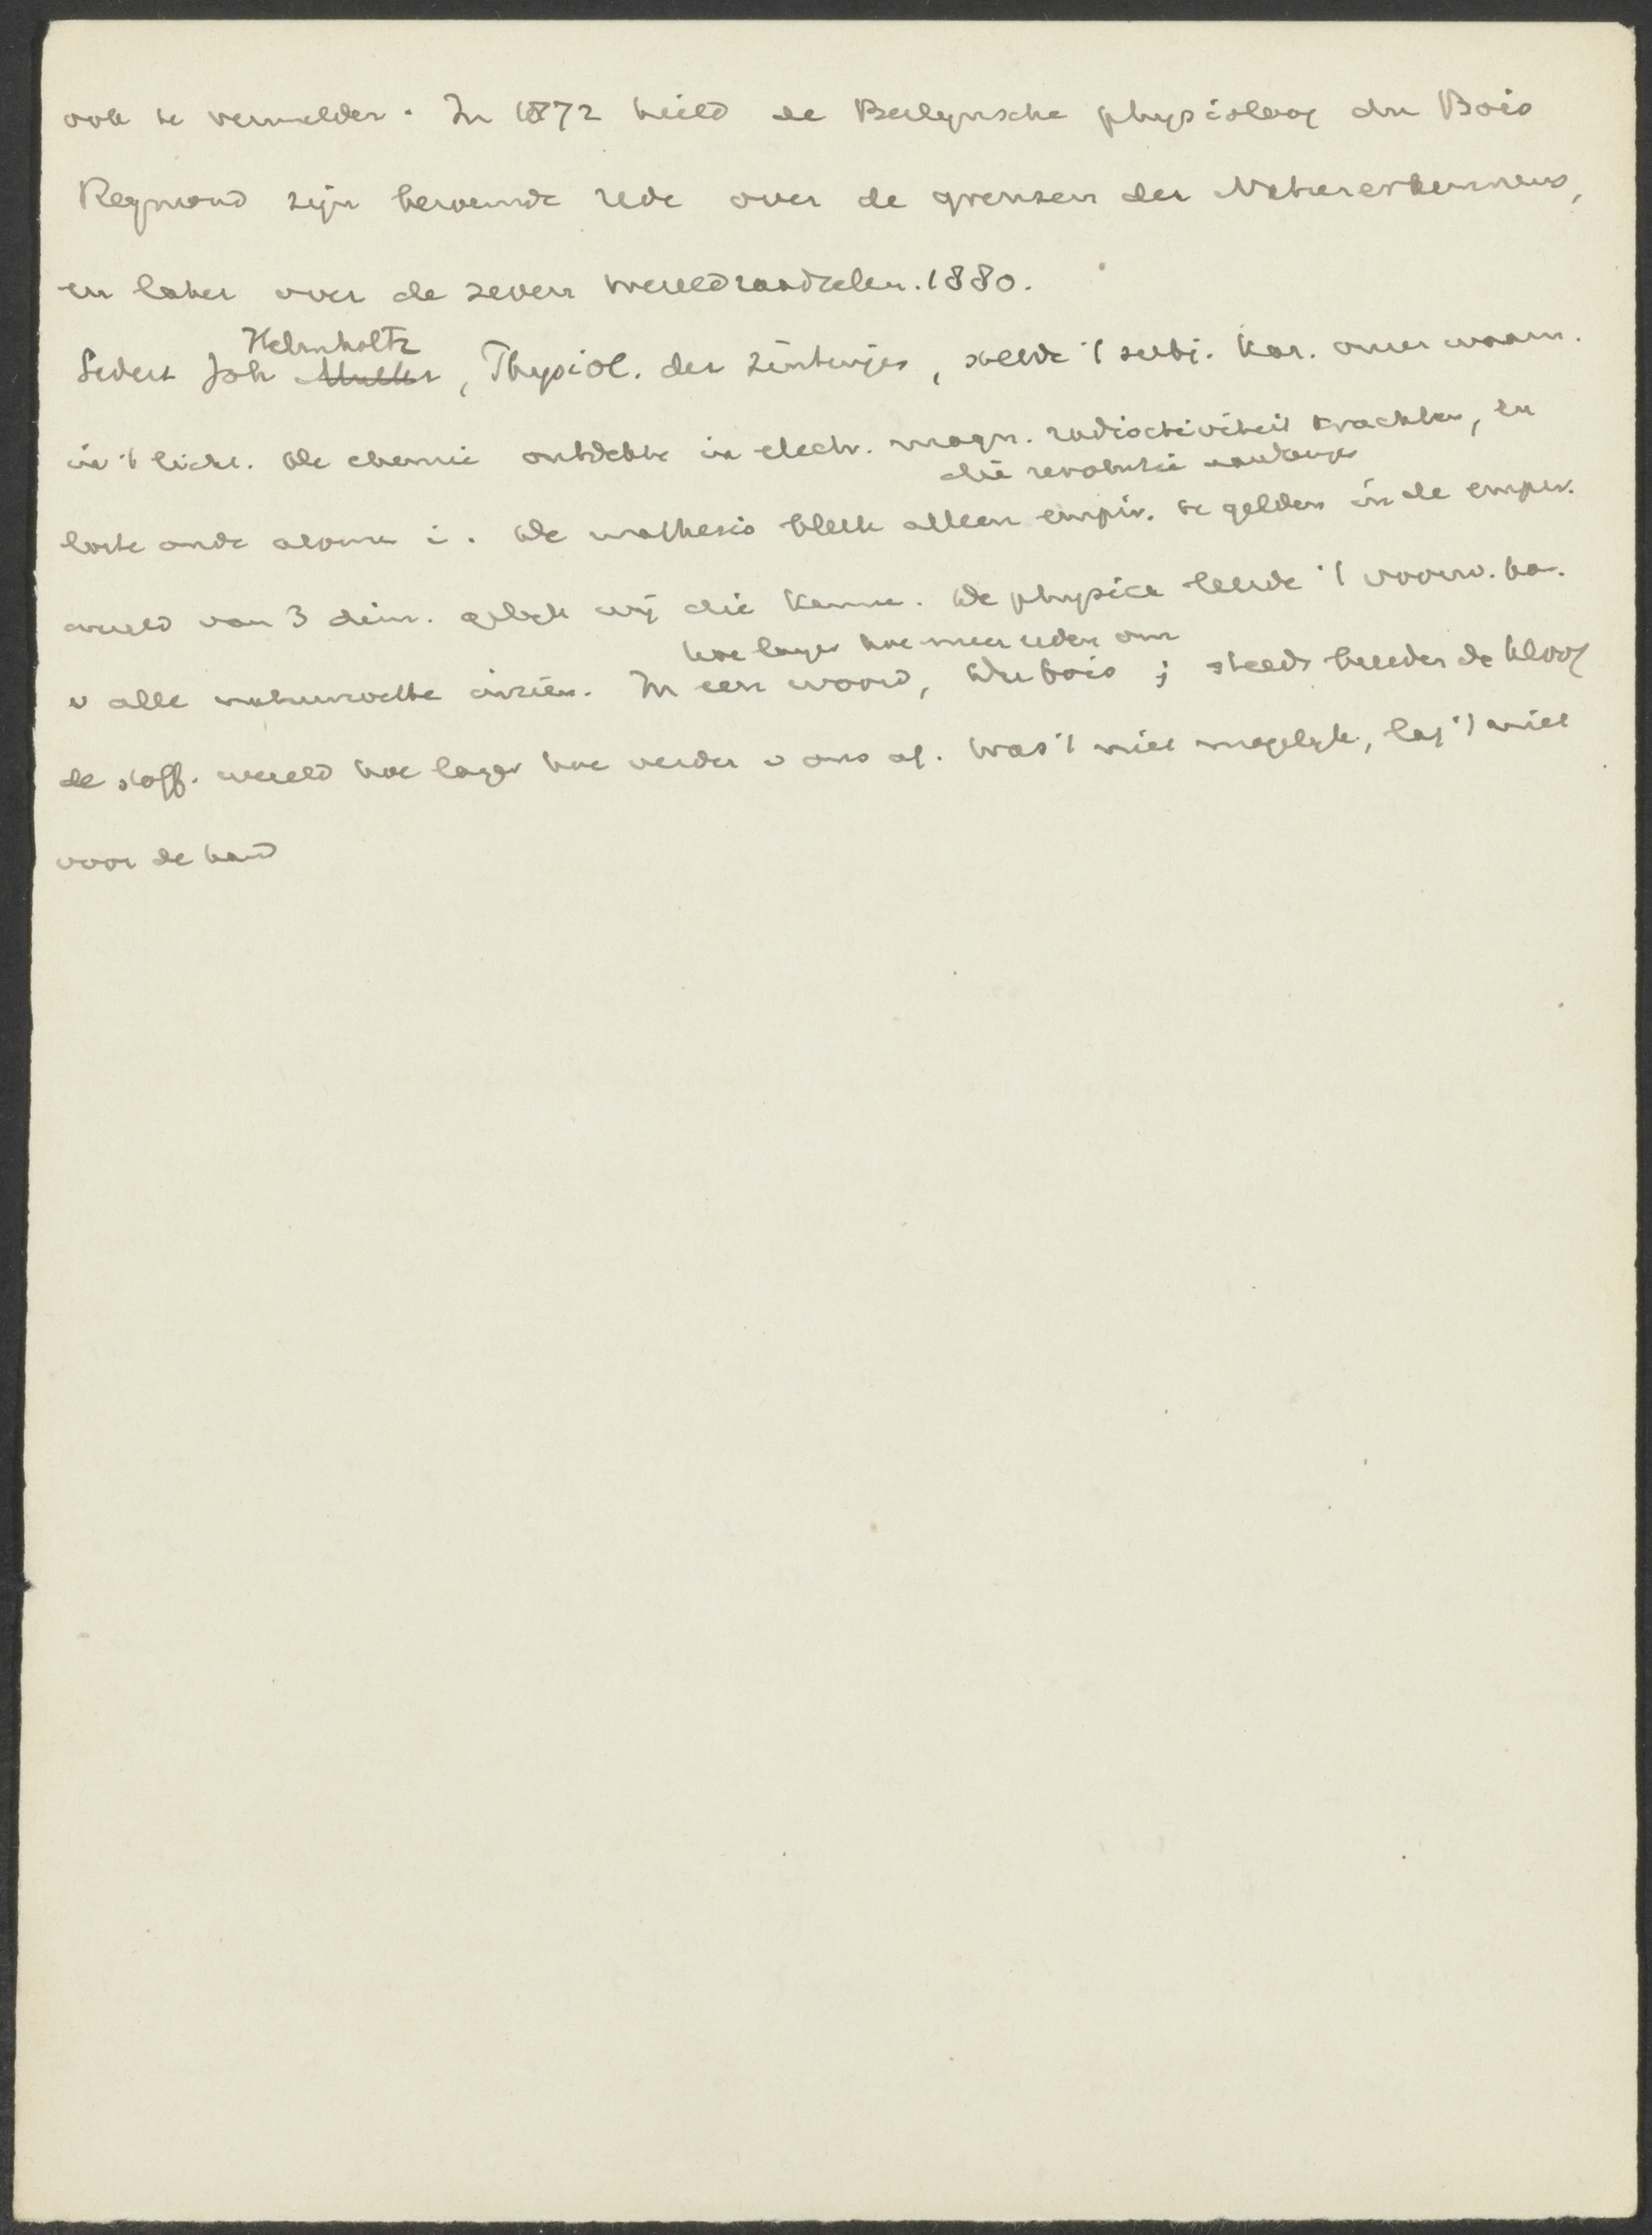 ook te vermelden. In 1872 hield de Berlynsche physioloog du Bois
Reymond zijn beroemde rede over de grenzen der Naturerkennens,
en later over de zeven wereldraadselen. 1880.
Helmholtz
Sedert Joh Muller, Physiol. der zintuigen, stelde 't subj. kar. onzer waarn.
in 't licht. De chemie ontdekte in electr. magn. radioactiviteit krachten, en
die revolutie
loste onde atomen i. De mathesis bleek alleen empir. te gelden in de empir.
wereld van 3 dim. gelyk wij die kennen. De physica leerde 't voorw. ka.
hoe langer hoe meer reden om
v alle natuurwette inzien. In een woord, Dubois ; steeds breeder de kloof
de stoff. wereld hoe langer hoe verder v ons af. Was 't niet mogelyk, lag 't niet
voor de hand